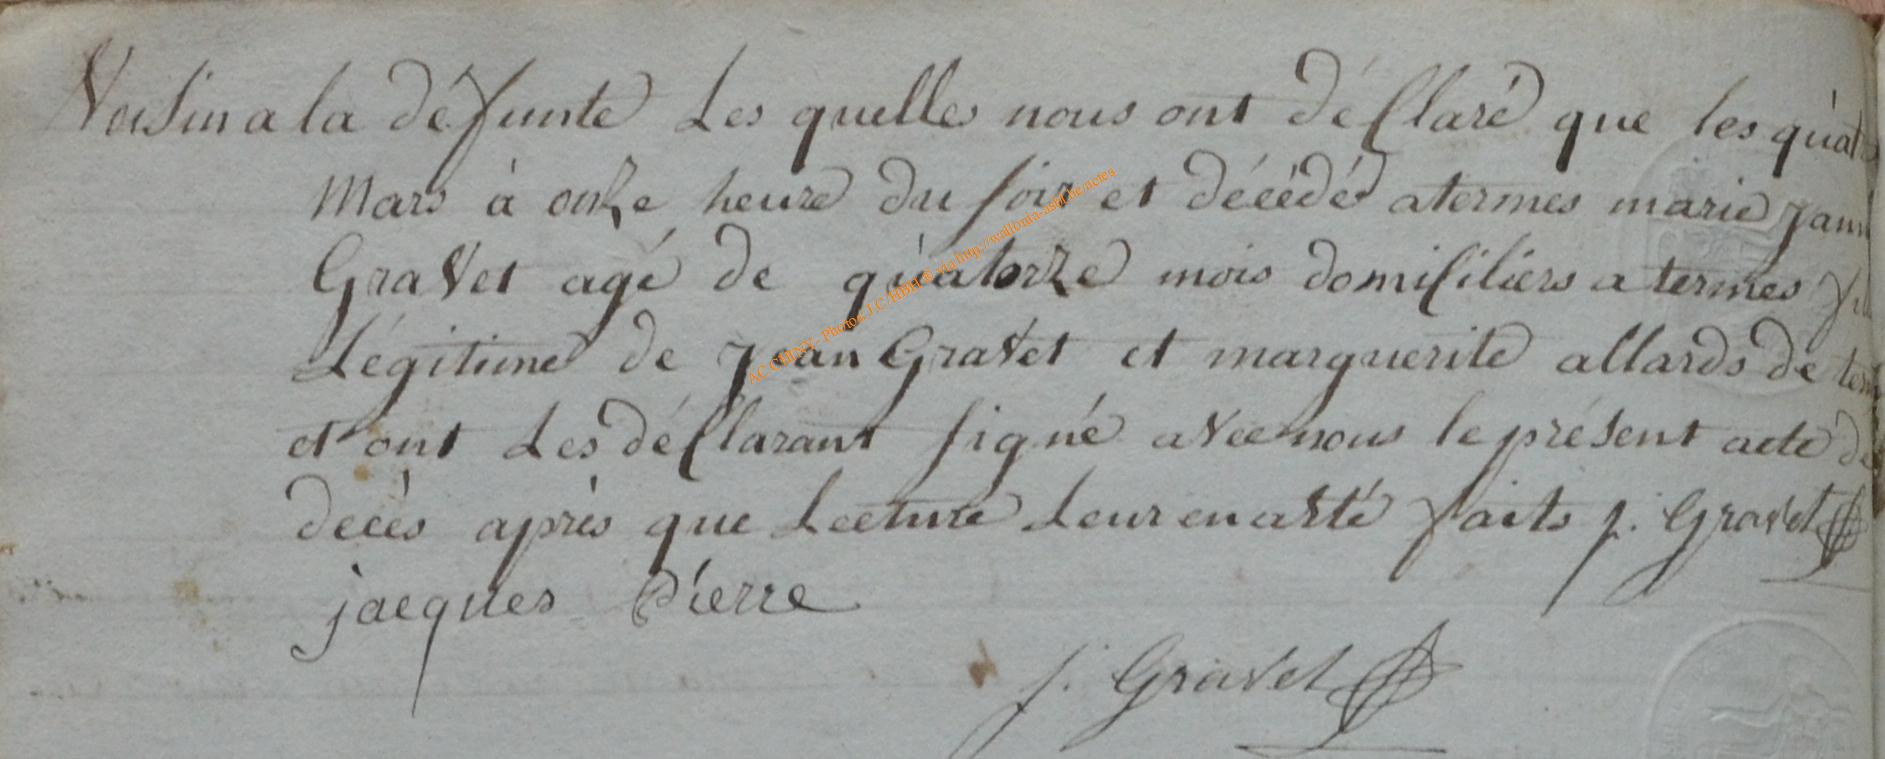 Voisin a la défunte Les quelles nous ont déclaré que les quat
Mars à onze heure du soir et décédé a termes marie jann
Gravet agé de quatorze mois domiciliers a termes fil
Légitime de jean Gravet et marguerite allards de term
et ont Les déclarant signé avec nous le présent acte de
decès après que Lecture Leur en a été faits j. Gravet
jacques Pierre
j. Gravet
AC CHINY- Photos J.C. HBH © via http://wallonia-asbl.be/notes